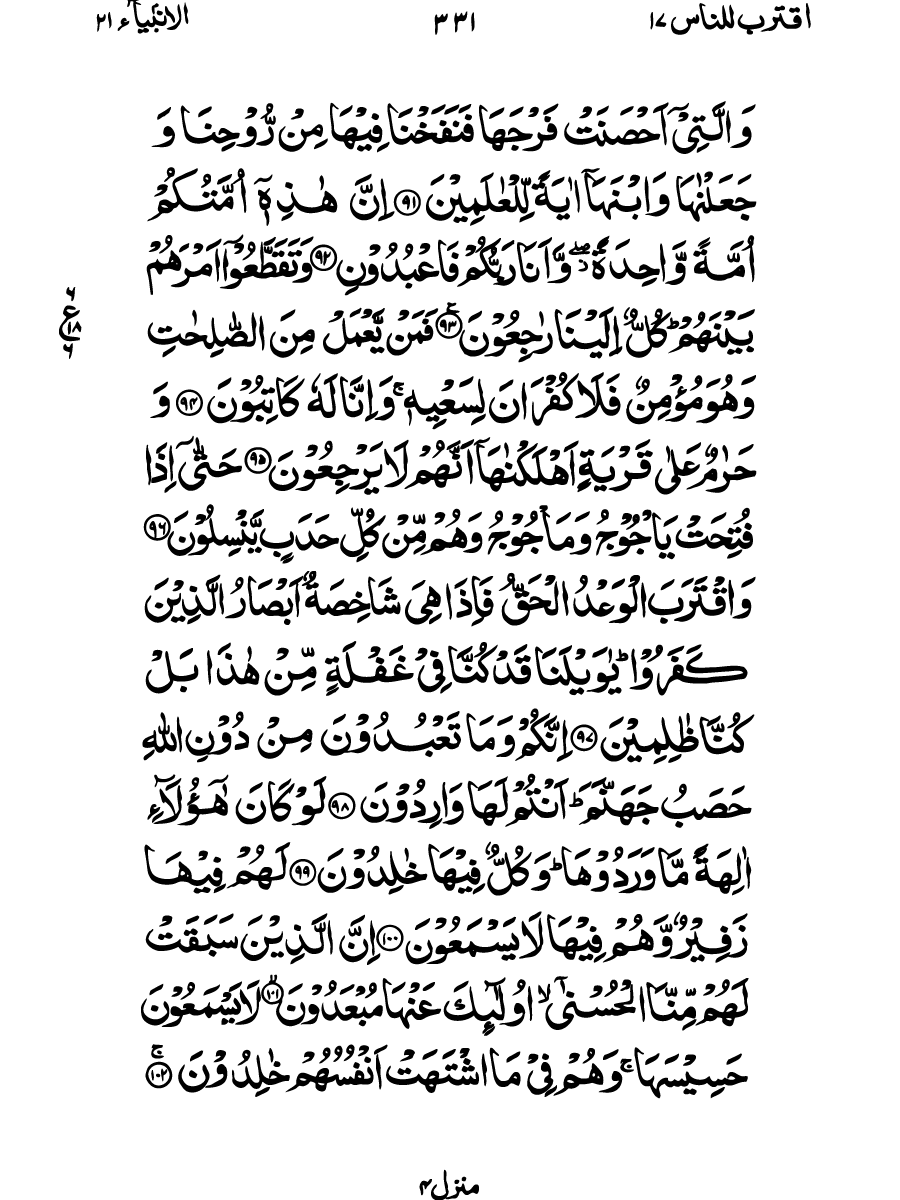 اقترب للناس ١٧ ٣٣١ الانبياء ٢١
وَالَّتِىْۤ اَحْصَنَتْ فَرْجَهَا فَنَفَخْنَا فِيْهَا مِنْ رُّوْحِنَا وَ
جَعَلْنٰهَا وَابْنَهَاۤ اٰيَةً لِّلْعٰلَمِيْنَ ﴿٩١﴾ اِنَّ هٰذِهٖۤ اُمَّتُكُمْ
اُمَّةً وَّاحِدَةً ۖ وَّاَنَا رَبُّكُمْ فَاعْبُدُوْنِ ﴿٩٢﴾ وَتَقَطَّعُوْۤا اَمْرَهُمْ
بَيْنَهُمْ ؕ كُلٌّ اِلَيْنَا رٰجِعُوْنَ ﴿٩٣﴾ فَمَنْ يَّعْمَلْ مِنَ الصّٰلِحٰتِ
٦ ع ١٨ ٦
وَهُوَ مُؤْمِنٌ فَلَا كُفْرَانَ لِسَعْيِهٖ ۚ وَاِنَّا لَهٗ كَاتِبُوْنَ ﴿٩٤﴾ وَ
حَرٰمٌ عَلٰى قَرْيَةٍ اَهْلَكْنٰهَاۤ اَنَّهُمْ لَا يَرْجِعُوْنَ ﴿٩٥﴾ حَتّٰٓى اِذَا
فُتِحَتْ يَاْجُوْجُ وَمَاْجُوْجُ وَهُمْ مِّنْ كُلِّ حَدَبٍ يَّنْسِلُوْنَ ﴿٩٦﴾
وَاقْتَرَبَ الْوَعْدُ الْحَقُّ فَاِذَا هِىَ شَاخِصَةٌ اَبْصَارُ الَّذِيْنَ
كَفَرُوْا ؕ يٰوَيْلَنَا قَدْ كُنَّا فِىْ غَفْلَةٍ مِّنْ هٰذَا بَلْ
كُنَّا ظٰلِمِيْنَ ﴿٩٧﴾ اِنَّكُمْ وَمَا تَعْبُدُوْنَ مِنْ دُوْنِ اللّٰهِ
حَصَبُ جَهَنَّمَ ؕ اَنْتُمْ لَهَا وَارِدُوْنَ ﴿٩٨﴾ لَوْ كَانَ هٰٓؤُلَاۤءِ
اٰلِهَةً مَّا وَرَدُوْهَا ؕ وَكُلٌّ فِيْهَا خٰلِدُوْنَ ﴿٩٩﴾ لَهُمْ فِيْهَا
زَفِيْرٌ وَّهُمْ فِيْهَا لَا يَسْمَعُوْنَ ﴿١٠٠﴾ اِنَّ الَّذِيْنَ سَبَقَتْ
لَهُمْ مِّنَّا الْحُسْنٰٓى ۙ اُولٰٓٮِٕكَ عَنْهَا مُبْعَدُوْنَ ﴿١٠١﴾ ۙ لَا يَسْمَعُوْنَ
حَسِيْسَهَا ۚ وَهُمْ فِىْ مَا اشْتَهَتْ اَنْفُسُهُمْ خٰلِدُوْنَ ﴿١٠٢﴾ ۚ
منزل ٤